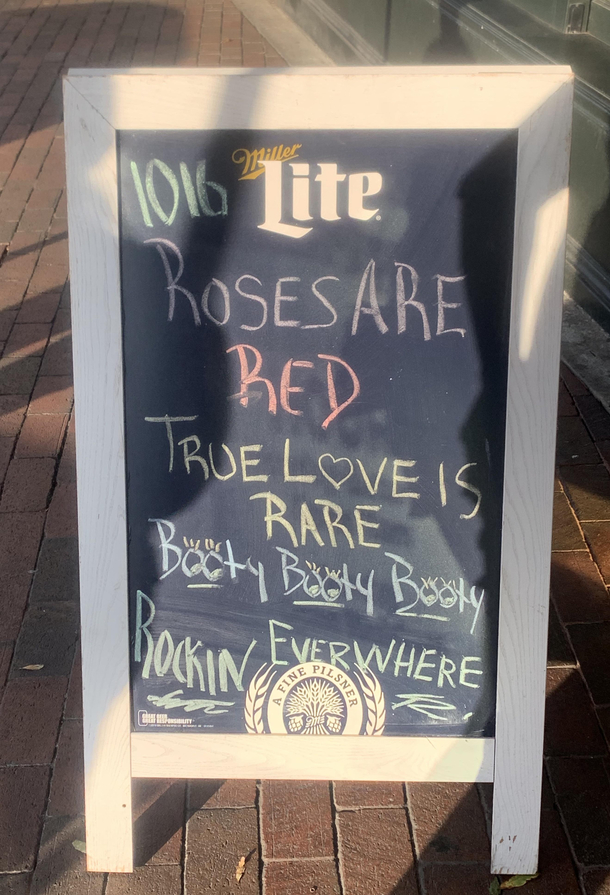 1016
Miller
Lite
ROSES ARE
RED
TRUE LOVE IS
RARE
Booty Booty Booty
ROCKIN EVERWHERE
A FINE PILSNER
GREAT BEER
GREAT RESPONSIBILITY